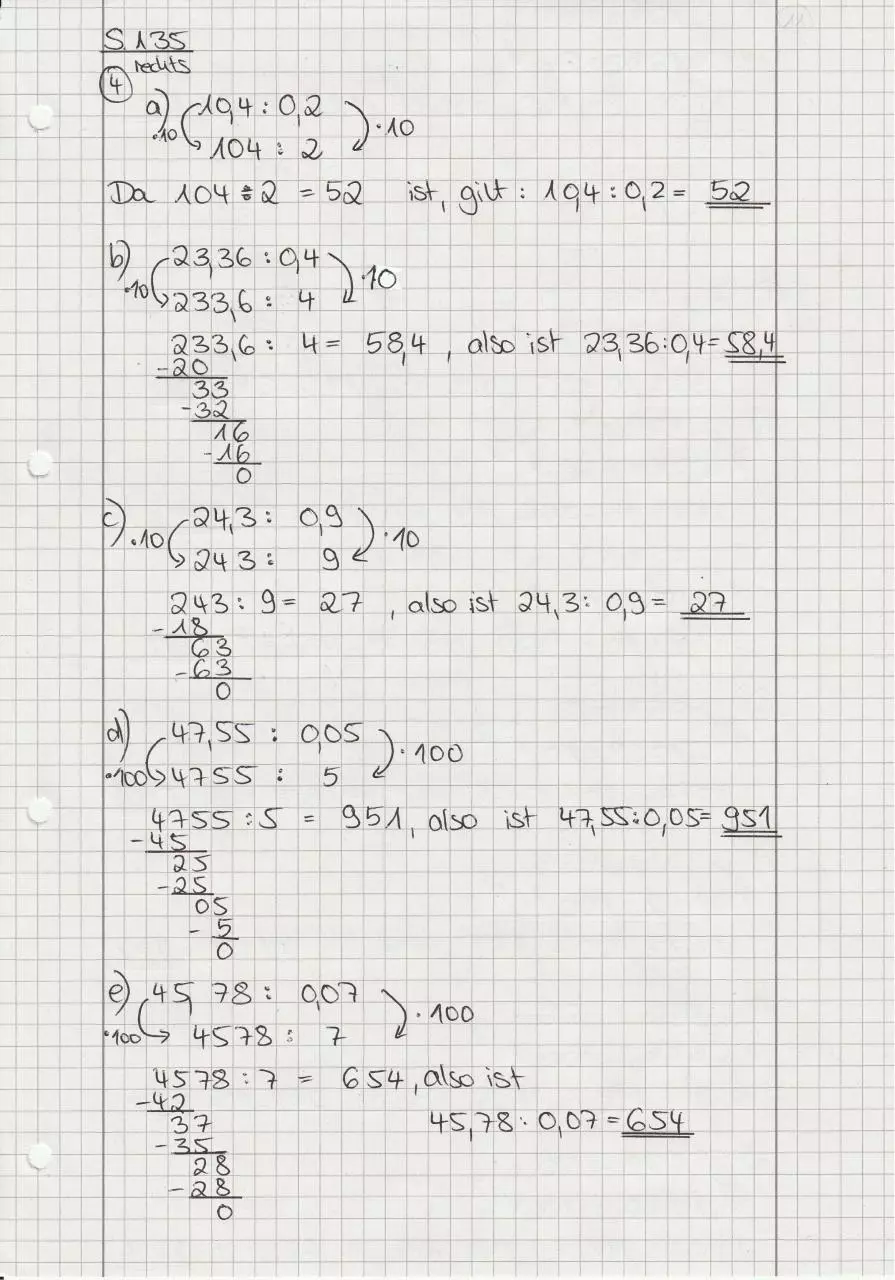 S. 135
rechts
4
a) 10,4 : 0,2
·10 ·10
104 : 2
Da 104 : 2 = 52 ist, gilt : 10,4 : 0,2 = 52
b) 23,36 : 0,4
·10 ·10
233,6 : 4
233,6 : 4 = 58,4 , also ist 23,36 : 0,4 = 58,4
-20
33
-32
16
-16
0
c) 24,3 : 0,9
·10 ·10
243 : 9
243 : 9 = 27 , also ist 24,3 : 0,9 = 27
-18
63
-63
0
d) 47,55 : 0,05
·100
·100 4755 : 5
4755 : 5 = 951, also ist 47,55 : 0,05 = 951
-45
25
-25
05
- 5
0
e) 45,78 : 0,07
·100
·100 4578 : 7
4578 : 7 = 654, also ist
-42
37 45,78 : 0,07 = 654
-35
28
-28
0